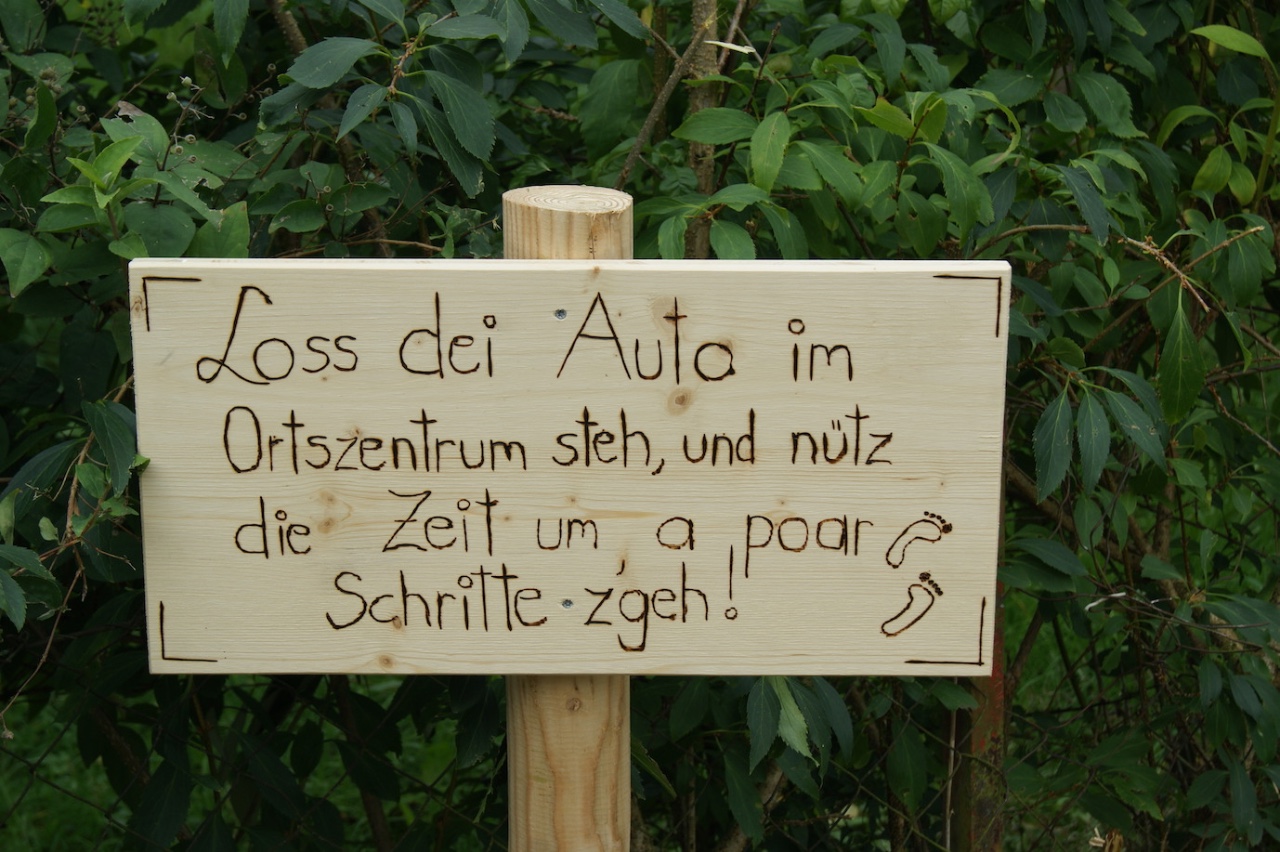 Loss dei Auto im
Ortszentrum steh, und nütz
die Zeit um a poar
Schritte z'geh!